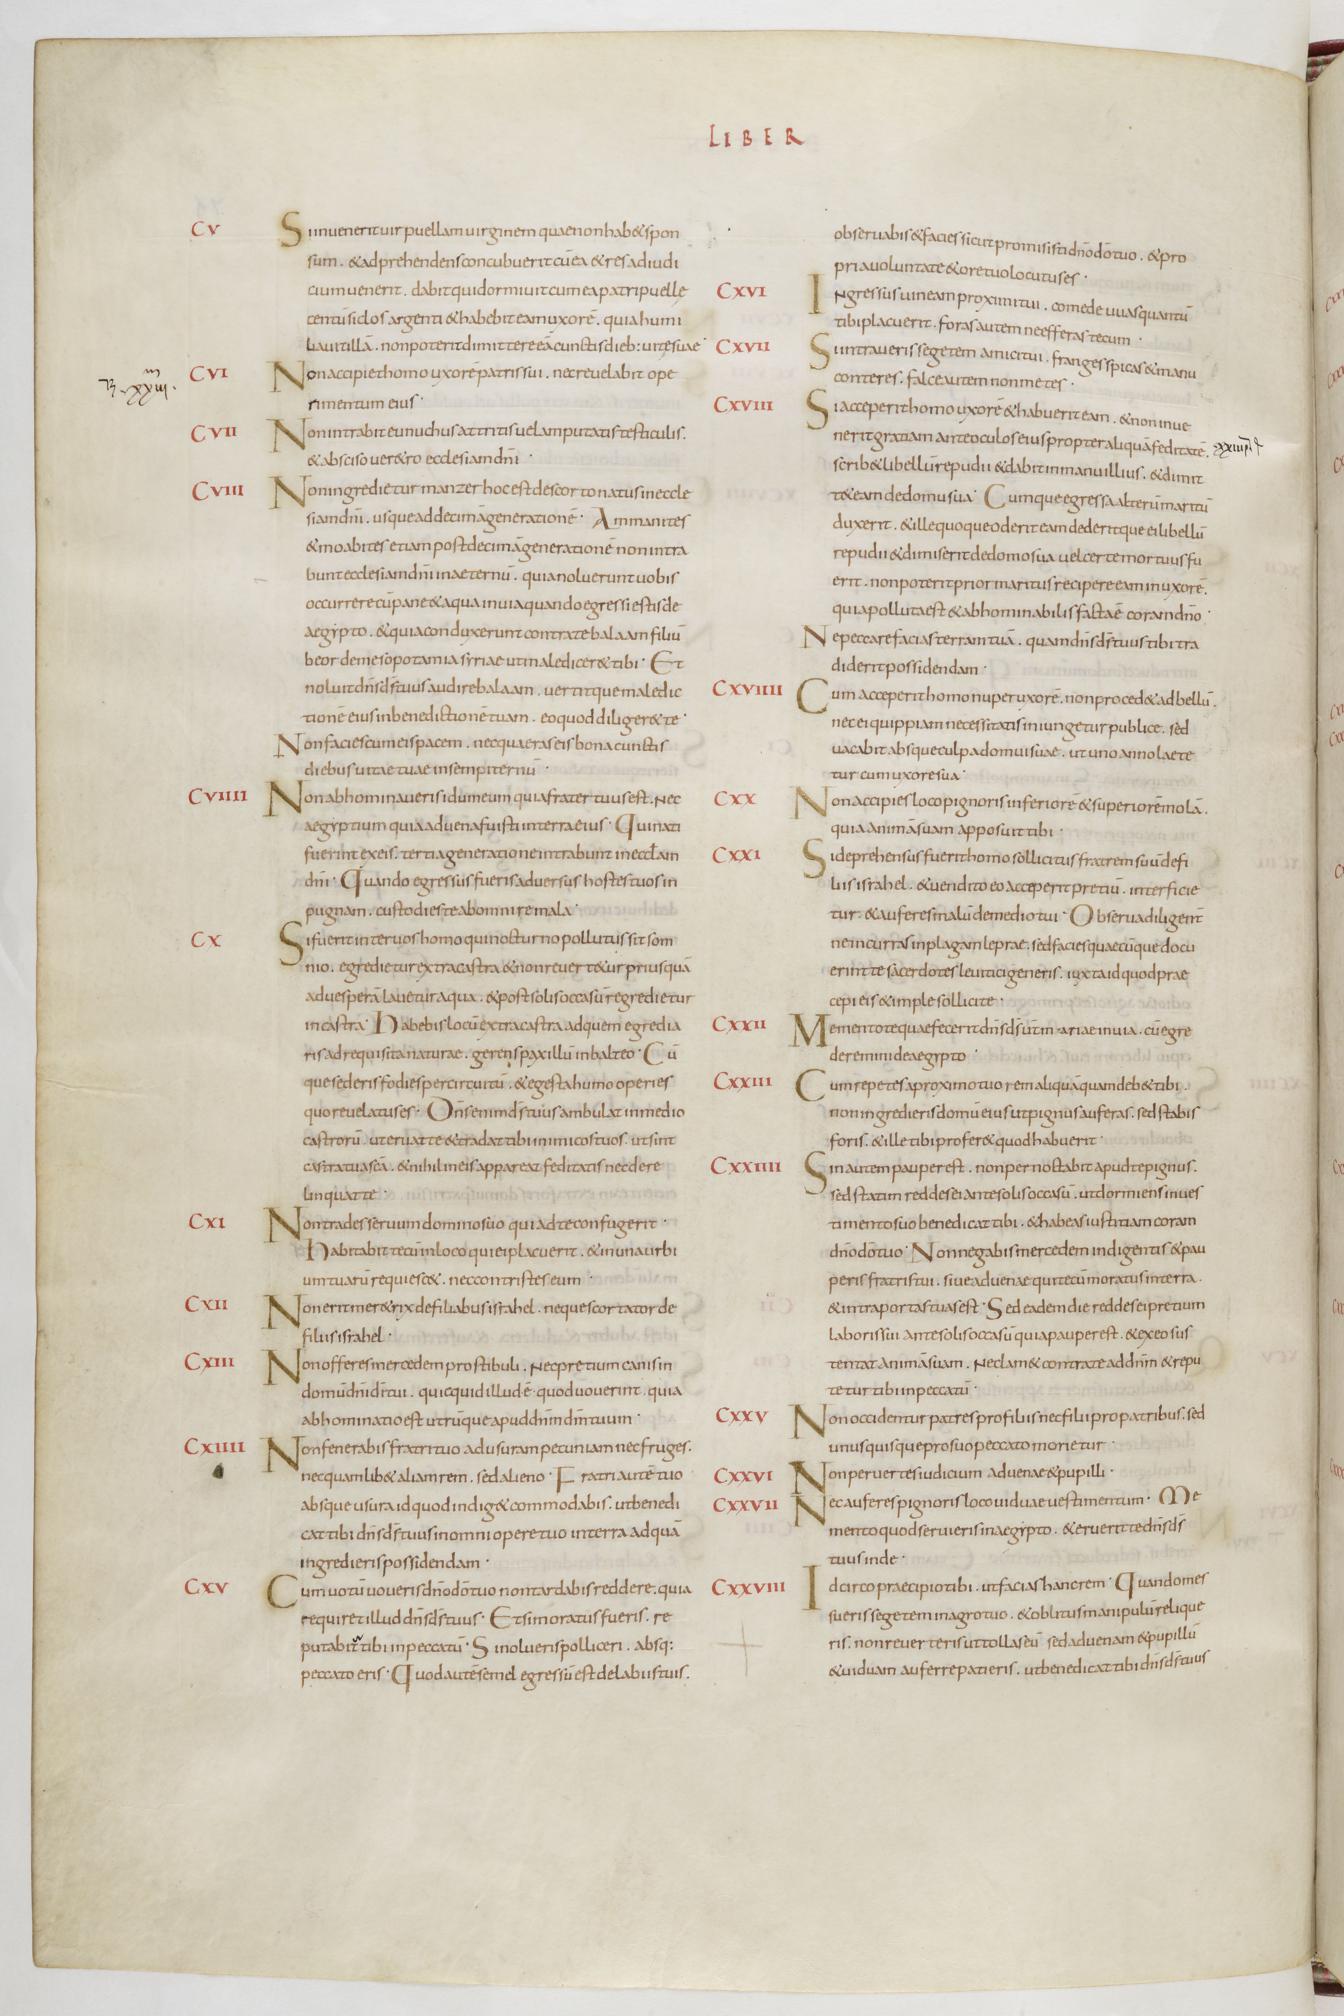 LIBER
CV
Si inuenerit uir puellam uirginem quae non hab& spon
sum . & adprehendens concubuerit cū ea & res ad iudi
cium uenerit . dabit qui dormiuit cum ea patri puelle
centū siclos argenti & habebit eam uxorē . quia humi
liauit illā . non poterit dimittere eā cunctis dieb: uitę suae
CVI
Non accipiet homo uxorē patris sui . nec reuelabit ope
rimentum eius
CVII
Non intrabit eunuchus attritis uel amputatis testiculis .
& absciso uer&ro ecclesiam dnī
CVIII
Non ingredietur manzer hoc est de scorto natus in eccle
siam dnī . usque ad decimā generationē . Ammanites
& moabites etiam post decimā generationē non intra
bunt ecclesiam dnī in aeternū . quia noluerunt uobis
occurrere cū pane & aqua in uia quando egressi estis de
aegypto . & quia conduxerunt contra te balaam filiū
beor de mesopotamia syriae ut maledicer& tibi . Et
noluit dnsds tuus audire balaam . uertitque maledic
tionē eius in benedictionē tuam . eo quod diliger& te
Non facies cum eis pacem . nec quaeras eis bona cunctis
diebus uitae tuae in sempiternū
CVIIII
Non abhominaueris idumeum quia frater tuus est . Nec
aegyptium quia aduena fuisti in terra eius . Qui nati
fuerint ex eis . tertia generatione intrabunt in eccłam
dnī . Quando egressus fueris aduersus hostes tuos in
pugnam . custodies te ab omni re mala
CX
Si fuerit inter uos homo qui nocturno pollutus sit som
nio . egredietur extra castra & non reuert&ur priusquā
ad uesperā lauetur aqua . & post solis occasū regredietur
in castra . Habebis locū extra castra ad quem egredia
ris ad requisita naturae . gerens paxillū in balteo . Cū
que sederis fodies per circuitū . & egesta humo operies
quo reuelatus es . Dns enim ds tuus ambulat in medio
castrorū . ut eruat te & tradat tibi inimicos tuos . ut sint
castra tua scā . & nihil in eis appareat feditatis nec dere
linquat te
CXI
Non trades seruum domino suo qui ad te confugerit .
Habitabit tecū in loco qui ei placuerit . & in una urbi
um tuarū requiesc& . nec contristes eum
CXII
Non erit mer&rix de filiabus israhel . neque scortator de
filiis israhel .
CXIII
Non offeres mercedem prostibuli . Nec pretium canis in
domū dnī dī tui . quicquid illud ē quod uouerint . quia
abhominatio est utrūque apud dnm dm tuum
CXIIII
Non fenerabis fratri tuo ad usuram pecuniam nec fruges .
nec quamlib& aliam rem . sed alieno . Fratri autē tuo
absque usura id quod indig& commodabis . ut benedi
cat tibi dnsds tuus in omni opere tuo in terra ad quā
ingredieris possidendam .
CXV
Cum uotū uoueris dno dō tuo non tardabis reddere . quia
requiret illud dnsds tuus . Et si moratus fueris . re
putabitr tibi in peccatū . Si nolueris polliceri . absq:
peccato eris . Quod autē semel egressū est de labiis tuis .
obseruabis & facies sicut promisisti dno dō tuo . & pro
pria uoluntate & ore tuo locutus es .
CXVI
Ingressus uineam proximi tui . comede uuas quantū
tibi placuerit . foras autem ne efferas tecum .
CXVII
Si intraueris segetem amici tui . franges spicas & manu
conteres . falce autem non metes .
CXVIII
Si acceperit homo uxorē & habuerit eam . & non inue
nerit gratiam ante oculos eius propter aliquā feditatē .
scrib& libellū repudii & dabit in manu illius . & dimit
t& eam de domu sua . Cumque egressa alterū maritū
duxerit . & ille quoque oderit eam dederitque ei libellū
repudii & dimiserit de domo sua uel certe mortuus fu
erit . non poterit prior maritus recipere eam in uxorē .
quia polluta est & abhominabilis facta ē coram dno .
Ne peccare facias terram tuā . quam dnsds tuus tibi tra
diderit possidendam .
CXVIIII
Cum acceperit homo nuper uxorē . non proced& ad bellū .
nec ei quippiam necessitatis iniungetur publice . sed
uacabit absque culpa domui suae . ut uno anno laete
tur cum uxore sua
CXX
Non accipies loco pignoris inferiorē & superiorē molā .
quia animā suam apposuit tibi .
CXXI
Si deprehensus fuerit homo sollicitus fratrem suū de fi
liis israhel . & uendito eo acceperit pretiū . interficie
tur . & auferes malū de medio tui . Obserua diligent
ne incurras in plagam leprae . sed facies quaecūque docu
erint te sacerdotes leuitici generis . iuxta id quod prae
cepi eis & imple sollicite .
CXXII
Mementote quae fecerit dnsds ūr mariae in uia . cū egre
deremini de aegypto .
CXXIII
Cum repetes a proximo tuo rem aliquā quam deb& tibi .
non ingredieris domū eius ut pignus auferas . sed stabis
foris . & ille tibi profer& quod habuerit
CXXIIII
Sin autem pauper est . non pernoctabit apud te pignus .
sed statim reddes ei ante solis occasū . ut dormiens in ues
timento suo benedicat tibi . & habeas iustitiam coram
dno dō tuo . Non negabis mercedem indigentis & pau
peris fratris tui . siue aduenae qui tecū moratus in terra .
& intra portas tuas est . Sed eadem die reddes ei pretium
laboris sui ante solis occasū quia pauper est . & ex eo sus
tentat animā suam . Ne clam& contra te ad dnm & repu
tetur tibi in peccatū .
CXXV
Non occidentur patres pro filiis nec filii pro patribus . sed
unusquisque pro suo peccato morietur .
CXXVI
Non peruertes iudicium aduenae & pupilli .
CXXVII
Nec auferes pignoris loco uiduae uestimentum . Me
mento quod seruieris in aegypto . & eruerit te dnsds
tuus inde .
CXXVIII
Idcirco praecipio tibi . ut facias hanc rem . Quando mes
sueris segetem in agro tuo . & oblitus manipulū relique
ris . non reuerteris ut tollas eū sed aduenam & pupillū
& uiduam auferre patieris . ut benedicat tibi dnsds tuus